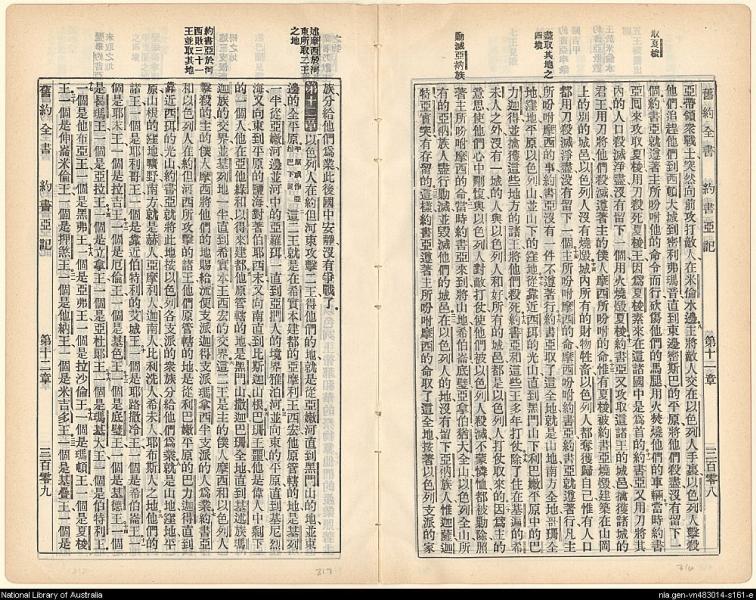 取夏梭
盡取其地之
四境
勦滅亞衲族
舊約全書 約書亞記 第十一章 三百零八
亞帶領衆戰士突然而前攻打敵人在米倫水邊主將敵人交在以色列人手裏以色列人擊殺
他們追趕他們到西頓大城到密利弗瑪音直到東邊密斯巴的平原將他們殺盡沒有留下一
個約書亞就遵著主所吩咐他的命令而行砍傷他們的馬腿用火焚燒他們的車輛當時約書
亞回來攻取夏梭用刀殺死夏梭王因爲夏梭素來在這諸國中是爲首的約書亞又用刀將其
內的人口殺滅淨盡沒有留下一個用火燒燬夏梭約書亞又攻取這諸王的城邑擒獲諸城的
君王用刀將他們殺滅遵著主的僕人摩西所吩咐的命惟有夏梭被約書亞燒燬建築在山岡
上的別的城邑以色列人沒有燒燬城內所有的財物牲畜以色列人都奪獲歸自己惟有人口
都用刀殺滅淨盡沒有留下一個主所吩咐摩西的命摩西吩咐約書亞約書亞就遵著行凡主
所吩咐摩西的事約書亞沒有一件不遵著行約書亞奪取了這全地就是山地南方全地哥珊全
地窪地平原以色列山地並山下的窪地從靠近西珥的光山直到黑門山下利巴嫩平原中的巴
力迦得並擒獲這些地方的諸王將他們殺死約書亞和這些王多年打仗除了住在基遍的希
未人之外沒有一城的人與以色列人和好所有的城邑都是以色列人打仗攻取來的因爲主的
意思使他們心中剛愎與以色列人對敵打仗使他們被以色列人殺滅不蒙憐恤都被勦除照
著主所吩咐摩西的命當時約書亞來到將山地希伯崙底璧亞拿伯猶大全山以色列全山所
有的亞衲族人盡行勦滅並毀滅他們的城邑在以色列人的地沒有留下亞衲族人惟迦薩迦
特亞實突有存留的這樣約書亞遵著主所吩咐摩西的命取了這全地接著以色列支派的家
述摩西於河
東所取二王
之地
約書亞於河
西敗三十一
王並取其地
族分給他們爲業此後國中安靜沒有爭戰了
第十二章 以色列人在約但河東攻擊二王得他們的地就是從亞嫩河直到黑門山的地並東
邊的全平原 這二王就是在希實本建都的亞摩利王西宏他原管轄的地是基列
一半從亞嫩河邊並河中的亞羅珥一直到亞捫人的境界雅泊河並向東的平原直到基尼烈
海又向東到平原的鹽海對著伯耶西末又向南直到比斯迦山根巴珊王噩他是偉人中剩下
的一個人他在亞他綠和以得來建都他原管轄的地是黑門山撒迦巴珊全地直到基述族瑪
迦族的交界並基列地一半直到希實本王西宏的交界這二王是主的僕人摩西和以色列人
擊殺的主的僕人摩西將他們的地賜給流便支派迦得支派瑪拿西半支派的人爲業約書亞
和以色列人在約但河西所攻擊的諸王他們原管轄的地是從利巴嫩平原的巴力迦得直到
靠近西珥的光山約書亞就將此地按以色列各支派的衆族分給他們爲業就是山地窪地平
原山根的窪地曠野南方就是赫人亞摩利人迦南人比利洗人希未人耶布斯人之地他們的
諸王一個是耶利哥王一個是靠近伯特利的艾城王一個是耶路撒冷王一個是希伯崙王一個
是耶末王一個是拉吉王一個是厄倫王一個是基色王一個是底璧王一個是基德王一個
是曷瑪王一個是亞拉王一個是立拿王一個是亞杜耶王一個是瑪基大王一個是伯特利王
一個是他布亞王一個是黑弗王一個是亞弗王一個是拉沙倫王一個是瑪頓王一個是夏梭
王一個是伸崙米倫王一個是押煞王一個是他納王一個是米吉多王一個是基疊王一個是
舊約全書 約書亞記 第十二章 三百零九
317
316
National Library of Australia
nla.gen-vn483014-s161-e